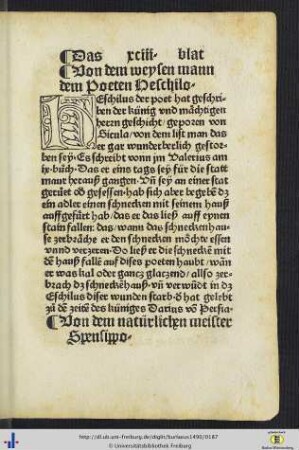 ¶Das xciii· blat
¶Von dem weysen mann
dem Poeten Heschilo·
Eschilus der poet hat geschri-
ben der künig vnd mächtigen
herrn geschicht / geporn von
Sicula / von dem lißt man das
er gar wunderberlich gestor-
ben seÿ· Es schreibt vonn jm Valerius am
ix· bůch· Das er eins tags seÿ für die statt
maur herauß gangen· Vñ seÿ an einer stat
gerüet ∂ gesessen· hab sich aber begebẽ dz
ein adler einen schnecken mit seinem hauß
auffgefürt hab / das er das ließ auff eynen
stain fallen: das / wann das schneckenhau-
se zerbräche er den schnecken möchte essen
vnnd verzeren· Do ließ er die schnecke mit
dẽ hauß fallẽ auff dises poeten haubt / wãn
er was kal oder gancz glaczend / allso zer-
brach dz schneckẽhauß· vñ verwũdt in dz
Eschilus diser wunden starb· ∂ hat gelebt
zů dẽ zeitẽ des küniges Darius võ Persia·
¶Von dem natürlichen meister
Speusippo·
http://dl.ub.uni-freiburg.de/diglit/burlaeus1490/0187
© Universitätsbibliothek Freiburg